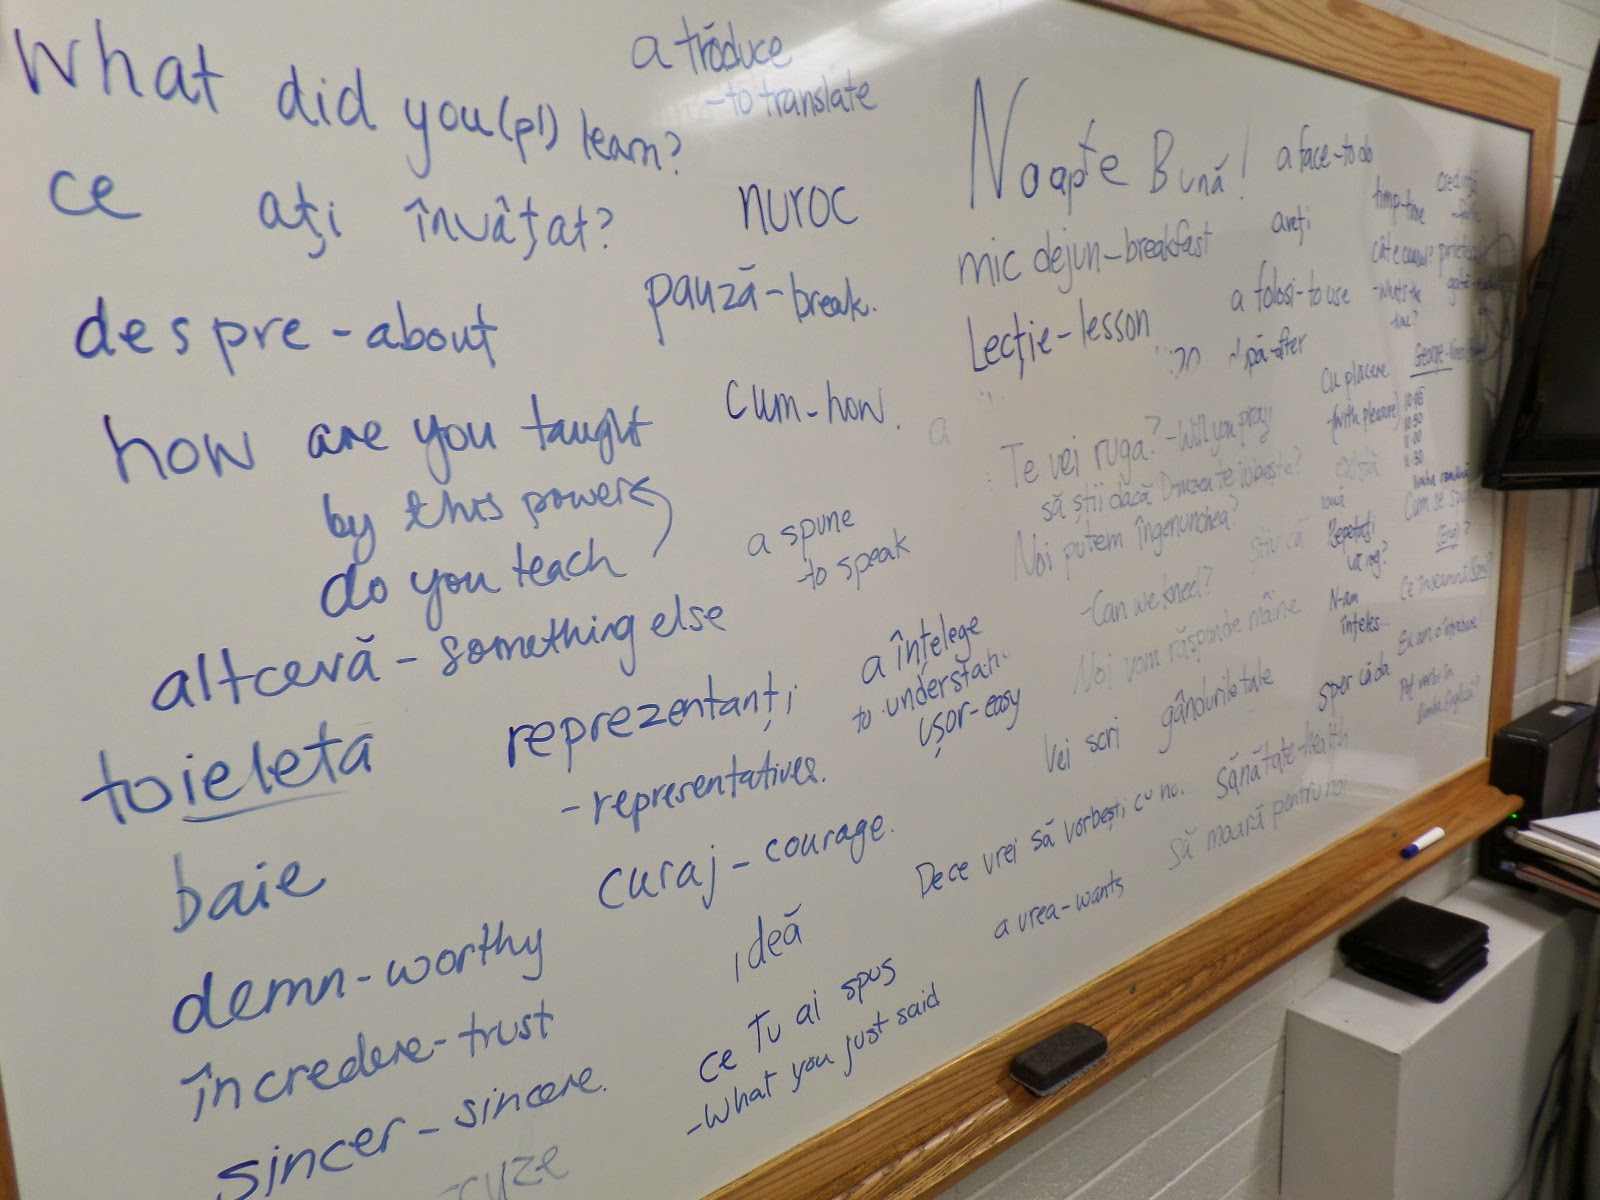 What did you (pl) learn?
ce ați învâțat?
despre - about
how are you taught
by this power
do you teach
altcevă - something else
toieleta
baie
demn - worthy
încredere - trust
sincer - sincere.
a trăduce
- to translate
nuroc
pauză - break.
cum - how.
a spune
to speak
reprezentanți
- representatives.
curaj - courage.
ideă
ce Tu ai spus
- What you just said
a înțelege
to understan
ușor - easy
Noapte Bună!
mic dejun - breakfast
Lecție - lesson
Te vei ruga? - Will you pray
să știi dacă
Noi putem îngenunchea?
- Can we kneel?
Noi vom răspunde mâine
Vei scri gândurile tale
De ce vrei să vorbești cu no.
a vrea - wants
Sănătate - health
Să moară pentru noi
a face - to do
aveți
a folosi - to use
pă - after
timp - time
- what's the
time?
Cu placere
(with pleasure)
există
știu că
Repetați
vă rog?
N-am
înțeles...
sper că da.
10:30
11:00
11:30
limba română
Cum se spune
(Eng)?
Ce înseamnă
Eu am o întrebare